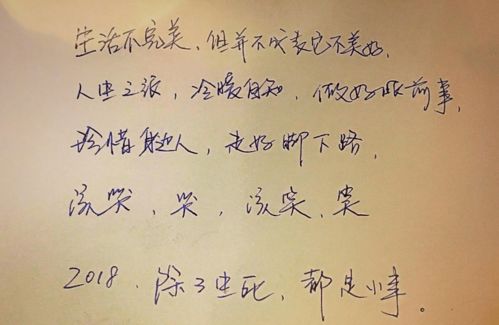 生活不完美，但并不代表它不美好，
人生之旅，冷暖自知，做好眼前事，
珍惜身边人，走好脚下路，
该哭，哭，该笑，笑
2018，除了生死，都是小事。